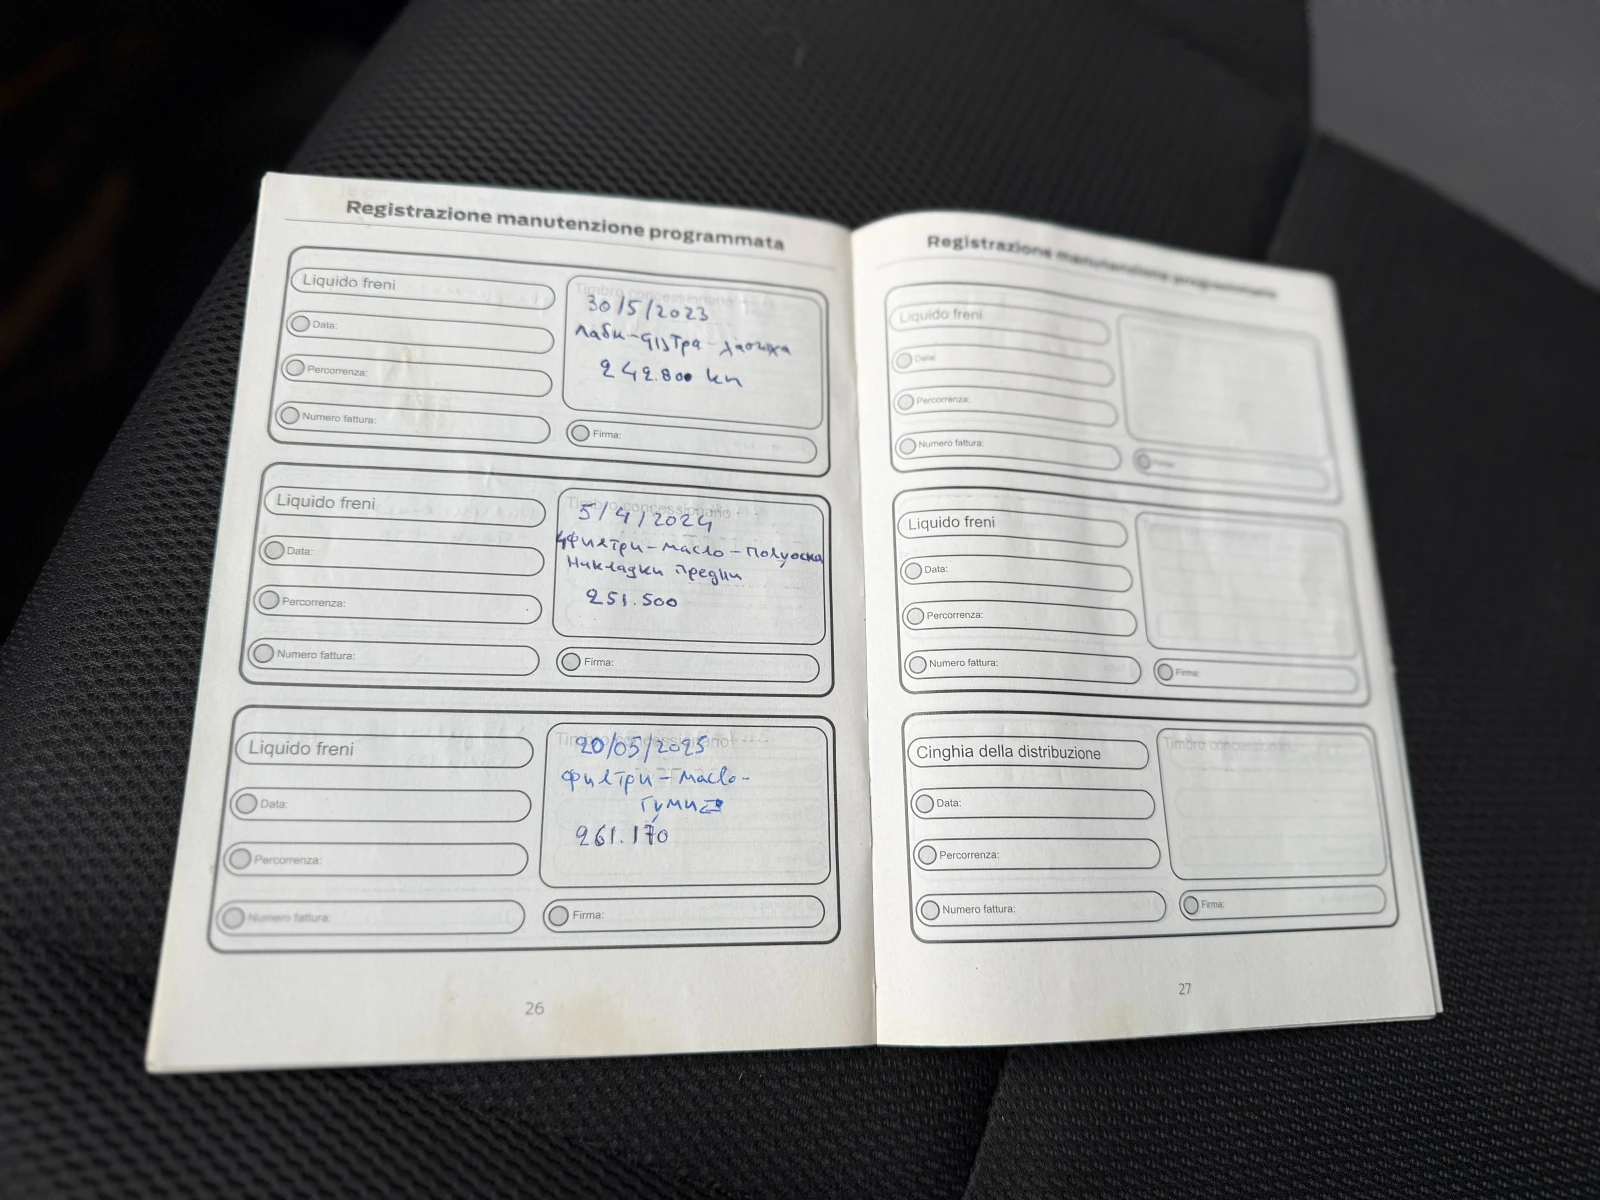 Registrazione manutenzione programmata
Liquido freni
Data:
Percorrenza:
Numero fattura:
Timbro concessionario
30/5/2023
242.800 km
Firma:
Liquido freni
Data:
Percorrenza:
Numero fattura:
Timbro concessionario
5/4/2024
4 филтри - масло - Полуоска
Никладки предни
251.500
Firma:
Liquido freni
Data:
Percorrenza:
Numero fattura:
Timbro concessionario
20/05/2025
филтри - масло -
гуми
261.170
Firma:
26
Registrazione manutenzione programmata
Liquido freni
Data:
Percorrenza:
Numero fattura:
Firma:
Liquido freni
Data:
Percorrenza:
Numero fattura:
Firma:
Cinghia della distribuzione
Data:
Percorrenza:
Numero fattura:
Timbro concessionario
Firma:
27